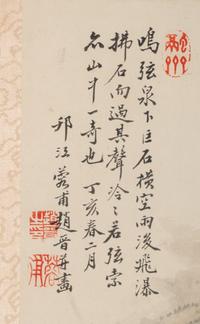 鳴弦泉下巨石橫空雨後飛瀑
拂石而過其聲泠〻若弦索
亦山中一奇也 丁亥春二月
邗江蓉甫趙晉并畫